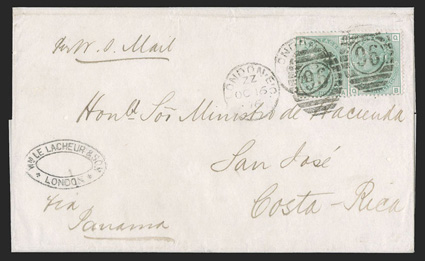 per W. I. Mail
LONDON E.C
ZZ
OC 16
96
96
Honble Sor Ministro de Hacienda
Wm LE LACHEUR & SON
LONDON
San José
Via
Panama
Costa-Rica